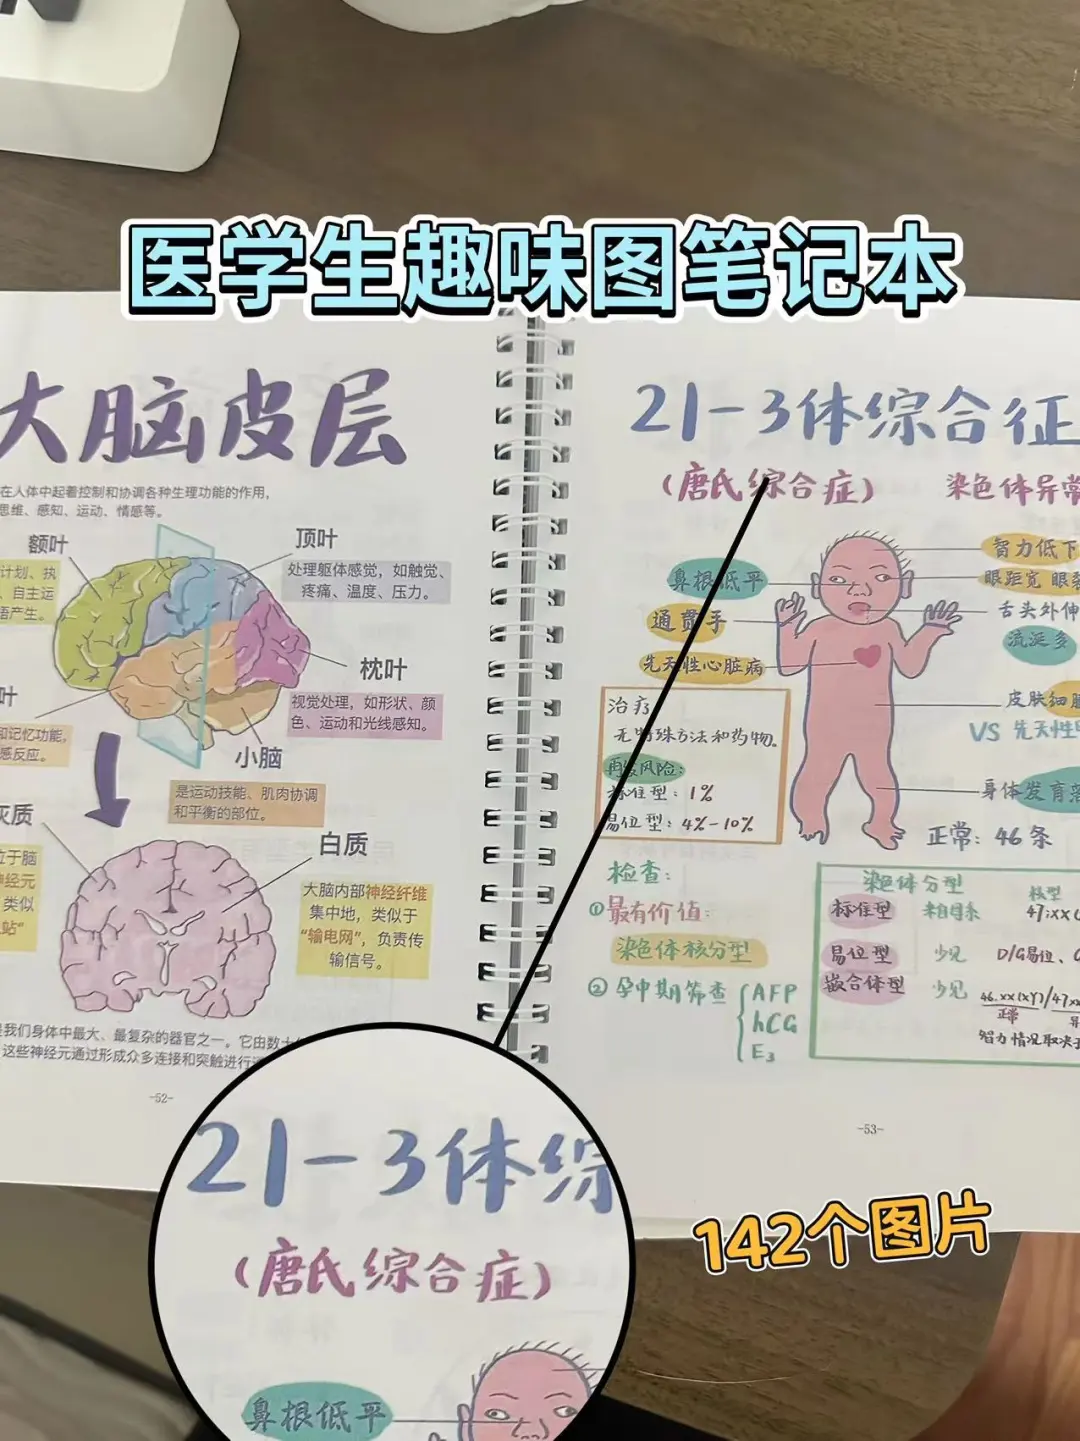 医学生趣味图笔记本
大脑皮层
在人体中起着控制和协调各种生理功能的作用，
思维、感知、运动、情感等。
额叶
计划、执
自主运
语产生。
顶叶
处理躯体感觉，如触觉、
疼痛、温度、压力。
枕叶
视觉处理，如形状、颜
色、运动和光线感知。
叶
和记忆功能，
感反应。
小脑
是运动技能、肌肉协调
和平衡的部位。
灰质
位于脑
神经元
类似
站”
白质
大脑内部神经纤维
集中地，类似于
“输电网”，负责传
输信号。
是我们身体中最大、最复杂的器官之一。它由数十
这些神经元通过形成众多连接和突触进行
-52-
21-3体综合征
（唐氏综合症）
染色体异常
智力低下
鼻根低平
眼距宽 眼裂
通贯手
舌头外伸
流涎多
先天性心脏病
皮肤细腻
VS 先天性甲
身体发育落
治疗
无特殊方法和药物。
再发风险：
标准型：1%
易位型：4%-10%
正常：46条
检查：
①最有价值：
染色体核分型
②孕中期筛查
AFP
hCG
E₃
染色体分型
核型
标准型 来自母亲 47,XX
易位型 少见 D/G易位、
嵌合体型 少见 46.XX(XY)/47XX
正常
智力情况取决于
-53-
21-3体综
（唐氏综合症）
鼻根低平
142个图片